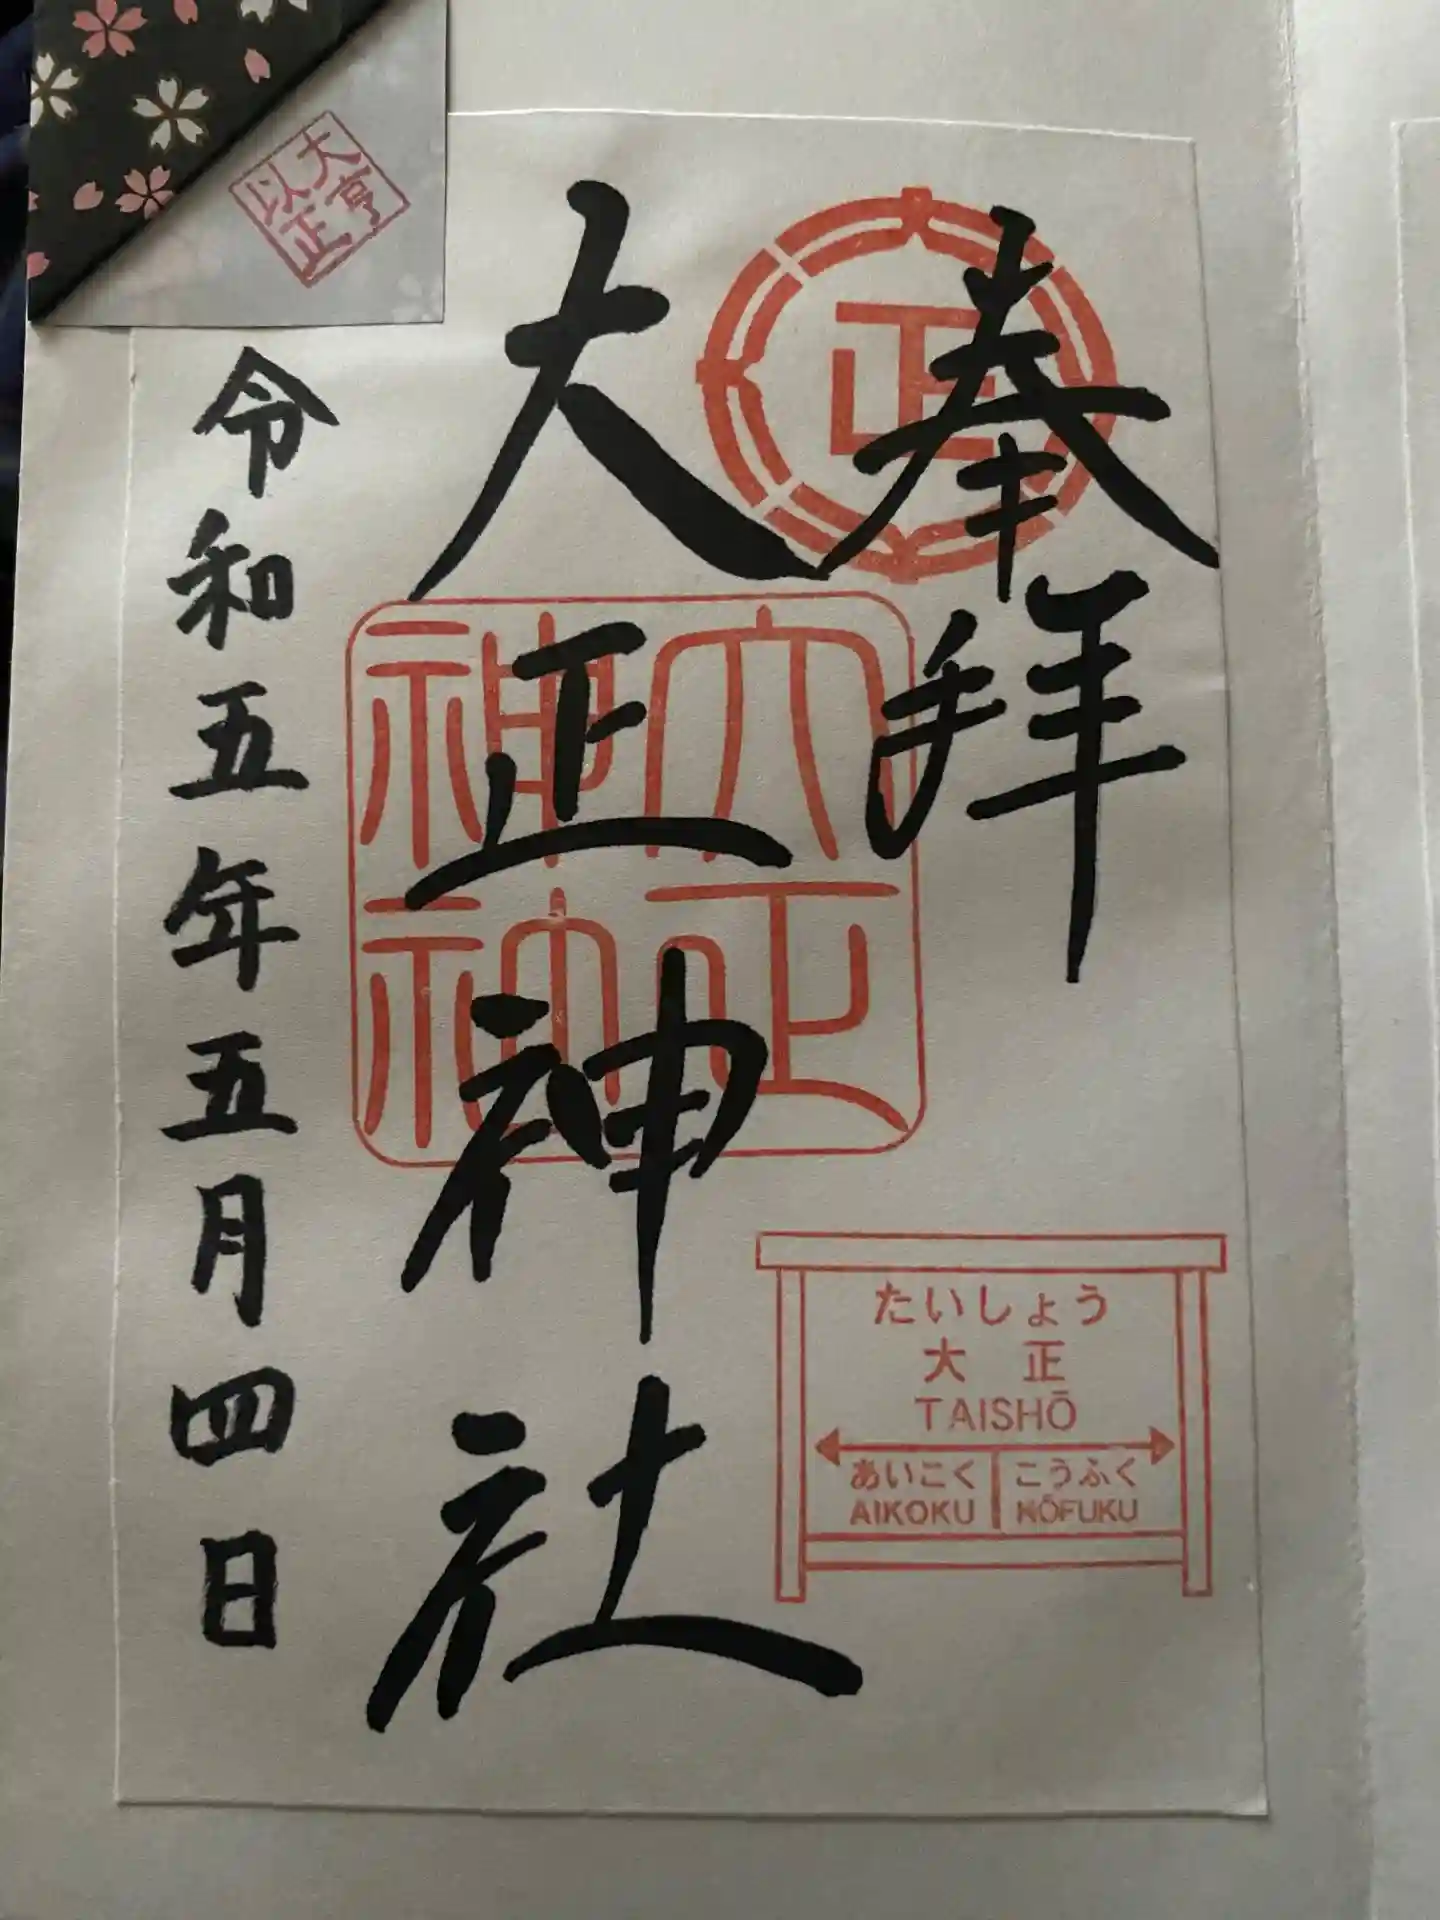 奉拝
正
大正神社
大正
神社
令和五年五月四日
大亨
以正
たいしょう
大正
TAISHŌ
あいこく こうふく
AIKOKU KŌFUKU